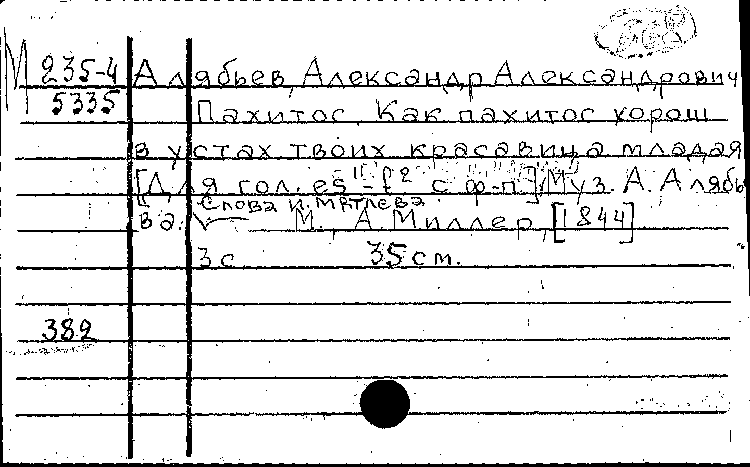 568
М 235-4 Алябьев, Александр Александрович
5335 Пахитос. Как пахитос хорош
в устах твоих красавица младая
[Для гол. es¹-f² с ф-п] Муз. А. Алябь
Слова И. Мятлева.
ва. М., А. Миллер, [1844]
3 с. 35 см.
382